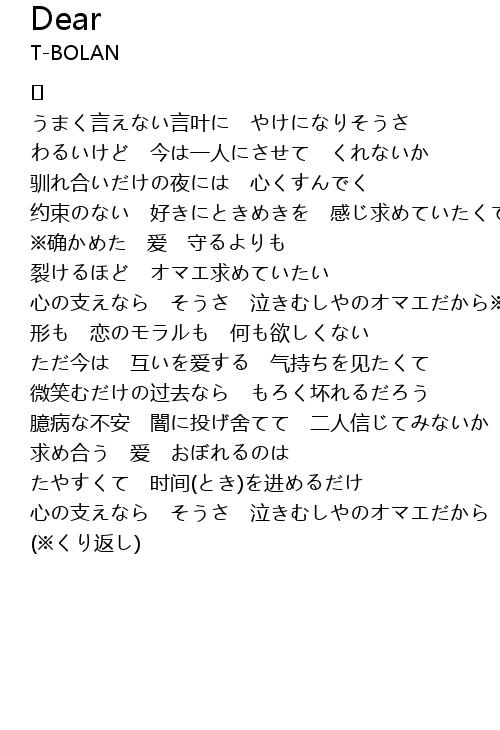 Dear
T-BOLAN
[]
うまく言えない言叶に　やけになりそうさ
わるいけど　今は一人にさせて　くれないか
驯れ合いだけの夜には　心くすんでく
约束のない　好きにときめきを　感じ求めていたくて
※确かめた　爱　守るよりも
裂けるほど　オマエ求めていたい
心の支えなら　そうさ　泣きむしやのオマエだから※
形も　恋のモラルも　何も欲しくない
ただ今は　互いを爱する　气持ちを见たくて
微笑むだけの过去なら　もろく坏れるだろう
臆病な不安　闇に投げ舍てて　二人信じてみないか
求め合う　爱　おぼれるのは
たやすくて　时间(とき)を进めるだけ
心の支えなら　そうさ　泣きむしやのオマエだから
(※くり返し)